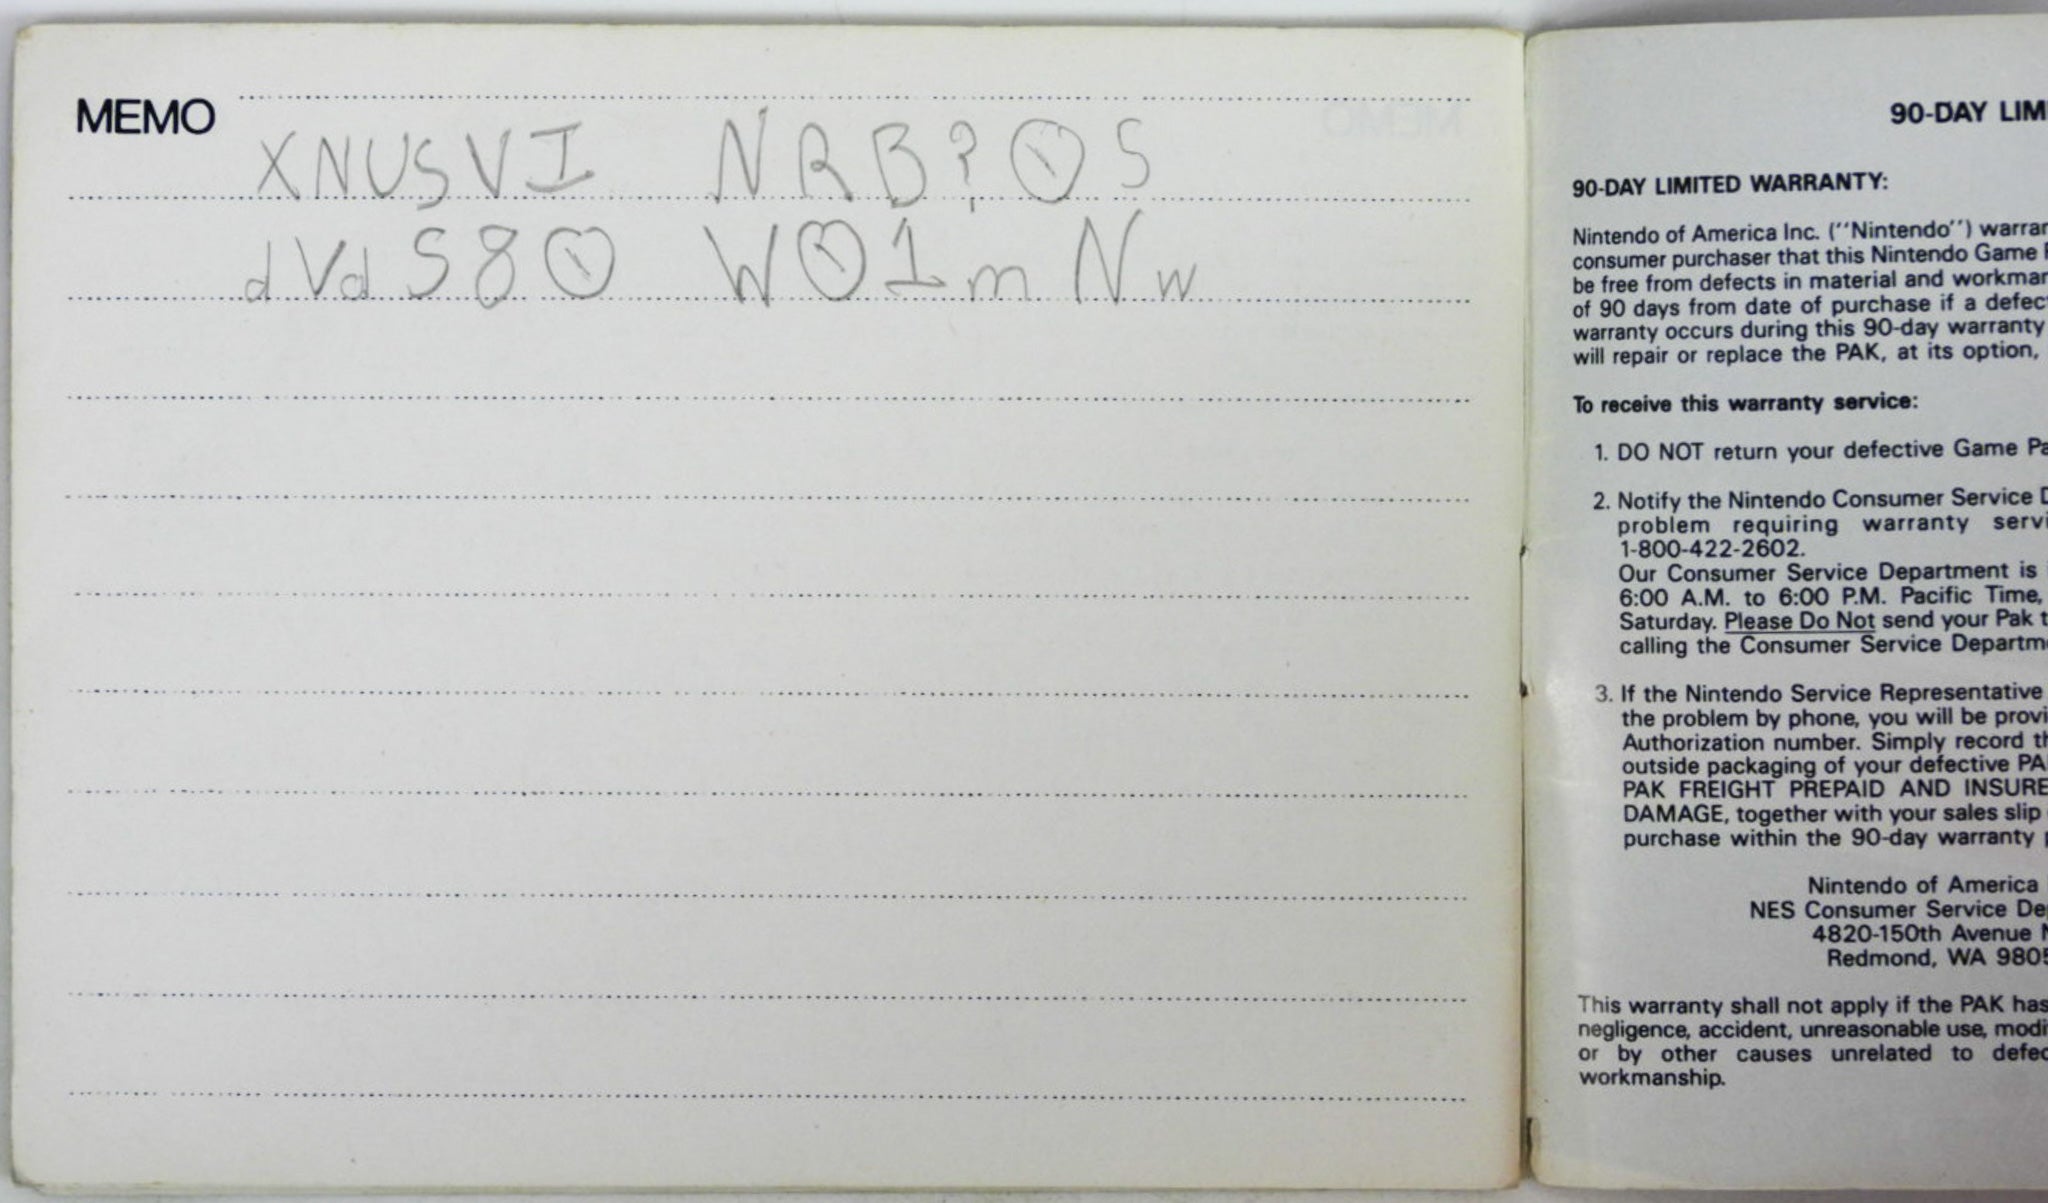 MEMO
XNUSVI NRB?0S
dVdS80 W01mNw
90-DAY LIM
90-DAY LIMITED WARRANTY:
Nintendo of America Inc. (‘‘Nintendo’’) warran
consumer purchaser that this Nintendo Game
be free from defects in material and workman
of 90 days from date of purchase if a defect
warranty occurs during this 90-day warranty
will repair or replace the PAK, at its option,
To receive this warranty service:
1. DO NOT return your defective Game Pa
2. Notify the Nintendo Consumer Service D
problem requiring warranty servi
1-800-422-2602.
Our Consumer Service Department is
6:00 A.M. to 6:00 P.M. Pacific Time,
Saturday. Please Do Not send your Pak t
calling the Consumer Service Departme
3. If the Nintendo Service Representative
the problem by phone, you will be provi
Authorization number. Simply record th
outside packaging of your defective PA
PAK FREIGHT PREPAID AND INSURE
DAMAGE, together with your sales slip
purchase within the 90-day warranty
Nintendo of America
NES Consumer Service De
4820-150th Avenue N
Redmond, WA 9805
This warranty shall not apply if the PAK has
negligence, accident, unreasonable use, modi
or by other causes unrelated to defec
workmanship.